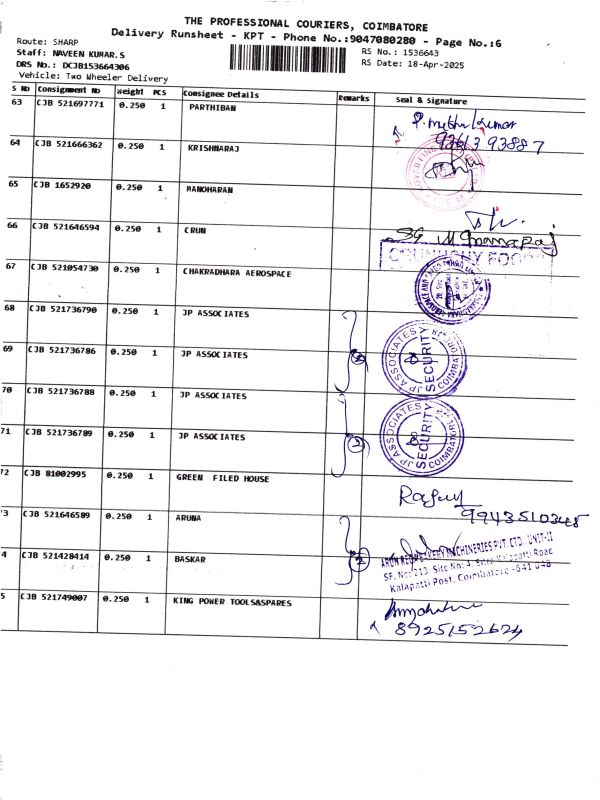 THE PROFESSIONAL COURIERS, COIMBATORE
Delivery Runsheet - KPT - Phone No.:9047080280 - Page No.:6
Route: SHARP
RS No.: 1536643
Staff: NAVEEN KUMAR.S
RS Date: 18-Apr-2025
DRS No.: DCJB153664306
Vehicle: Two Wheeler Delivery
S No Consignment No Weight PCS Consignee Details Remarks Seal & Signature
63 CJB 521697771 0.250 1 PARTHIBAN
64 CJB 521666362 0.250 1 KRISHNARAJ
65 CJB 1652920 0.250 1 MANOHARAN
66 CJB 521646594 0.250 1 CRUN
67 CJB 521054730 0.250 1 CHAKRADHARA AEROSPACE
68 CJB 521736790 0.250 1 JP ASSOCIATES
69 CJB 521736786 0.250 1 JP ASSOCIATES
JP ASSOCIATES SECURITY COIMBATORE
70 CJB 521736788 0.250 1 JP ASSOCIATES
71 CJB 521736789 0.250 1 JP ASSOCIATES 2
JP ASSOCIATES SECURITY COIMBATORE
72 CJB 81002995 0.250 1 GREEN FILED HOUSE
3 CJB 521646589 0.250 1 ARUNA
9943510348
4 CJB 521428414 0.250 1 BASKAR 2
MACHINERIES PVT. LTD. UNIT-II
SF. No: 213, Site No: 4, Kalapatti Road
Kalapatti Post, Coimbatore -641 048
5 CJB 521749007 0.250 1 KING POWER TOOLS&SPARES
8925152624